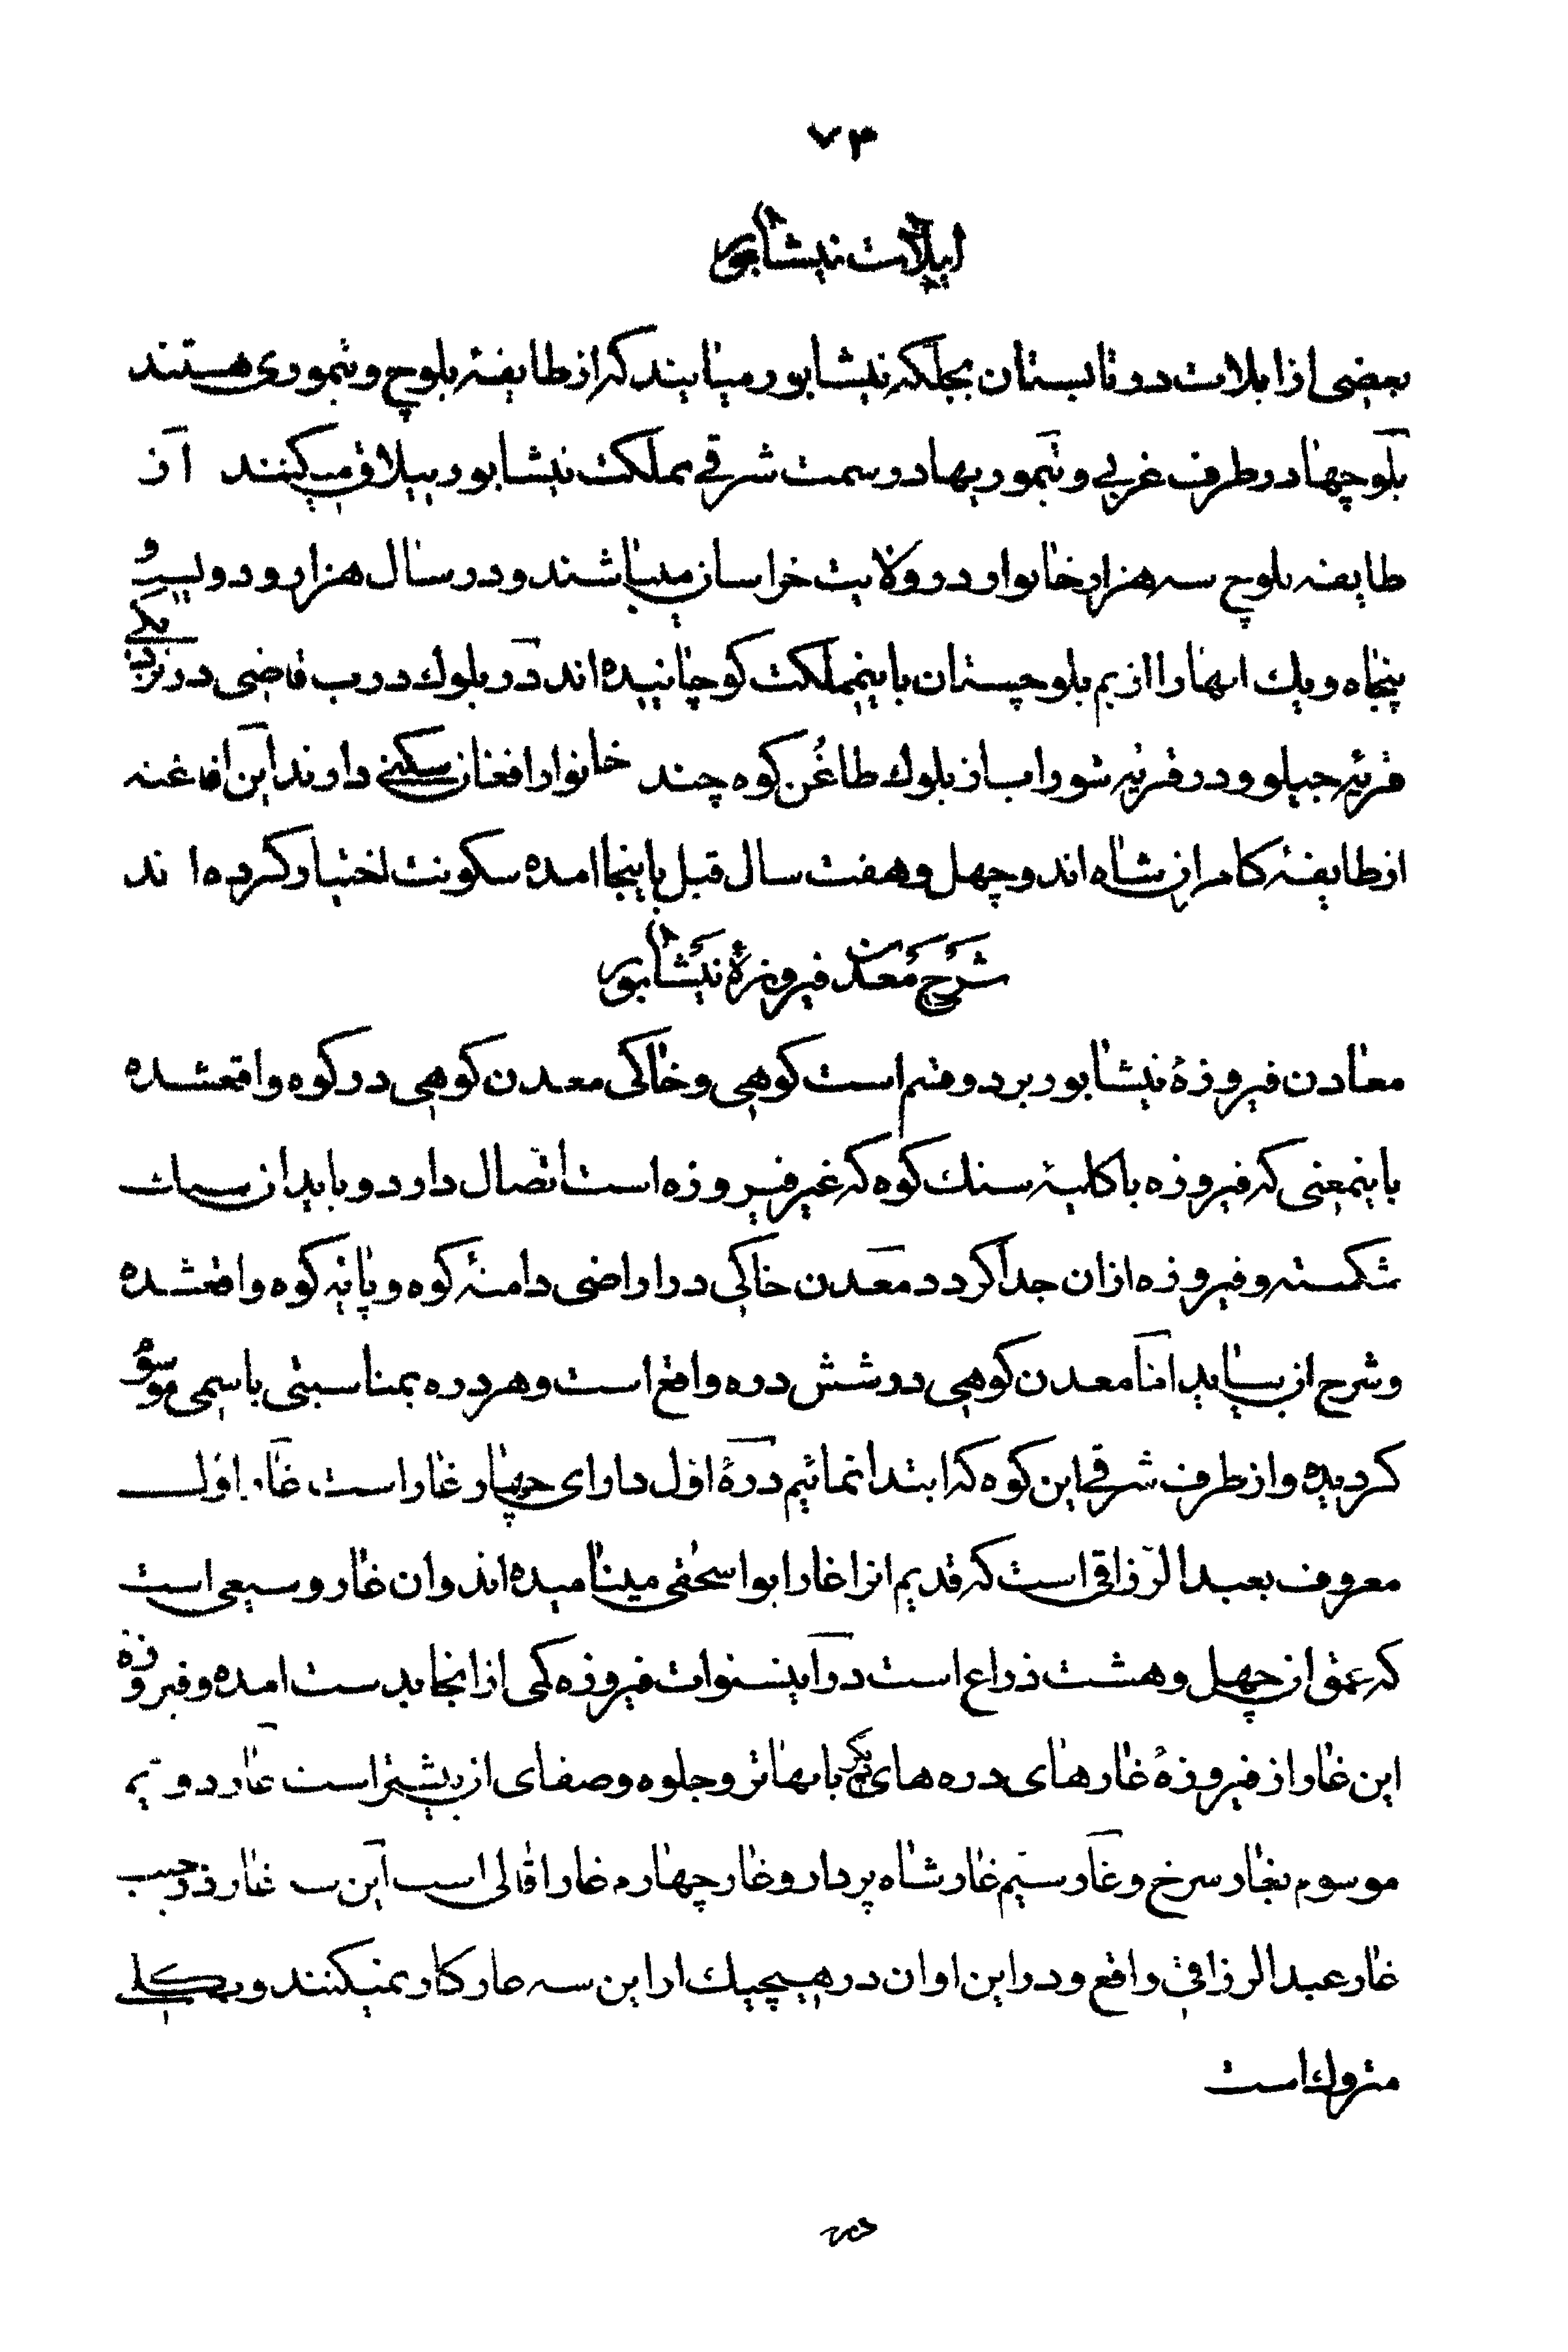 ۷۳
ایلات نیشابور
بعضی از ایلات در تابستان بجلگه نیشابور میایند که از طایفهٔ بلوچ و تیموری هستند
بلوچها در طرف غربی و تیموریها در سمت شرقی مملکت نیشابور ییلاق میکنند از
طایفه بلوچ سه هزار خانوار در ولایت خراسان میباشند و در سال هزار و دویست و
پنجاه و یک انها را از بم بلوچستان باینمملکت کوچانیده اند در بلوک درب قاضی در نزدیکی
قریه جیلو و در قریه شوراب از بلوک طاغُن کوه چند خانوار افغان سکنی دارند این افاغنه
از طایفهٔ کامران شاه اند و چهل و هفت سال قبل باینجا امده سکونت اختیار کرده اند
شرح معدن فیروزهٔ نیشابور
معادن فیروزهٔ نیشابور بر دو قسم است کوهی و خاکی معدن کوهی در کوه واقعشده
باینمعنی که فیروزه با کلیهٔ سنک کوه که غیر فیروزه است اتّصال دارد و باید از سنک
شکسته و فیروزه ازان جدا کردد معدن خاکی در اراضی دامنهٔ کوه و پایهٔ کوه واقعشده
و شرح ان بیاید امّا معدن کوهی در شش دره واقع است و هر دره بمناسبتی باسمی موسوم
کردیده و از طرف شرقی این کوه که ابتدا نمائیم درهٔ اوّل دارای چهار غار است غار اوّل
معروف بعبد الرّزاقی است که قدیم انرا غار ابواسحقی مینامیده اند و ان غار وسیعی است
که عمق ان چهل و هشت ذراع است در اینسنوات فیروزه کمی از انجا بدست امده و فیروزهٔ
این غار از فیروزهٔ غارهای دره های دیگر بابهاتر و جلوه و صفای ان بیشتر است غار دویّم
موسوم بغار سرخ و غار سیّم غار شاه پردار و غار چهارم غار اقالی است این غار در جنب
غار عبد الرزاقی واقع و در این اوان در هیچیک از این سه غار کار نمیکنند و بکلی
متروک است
در